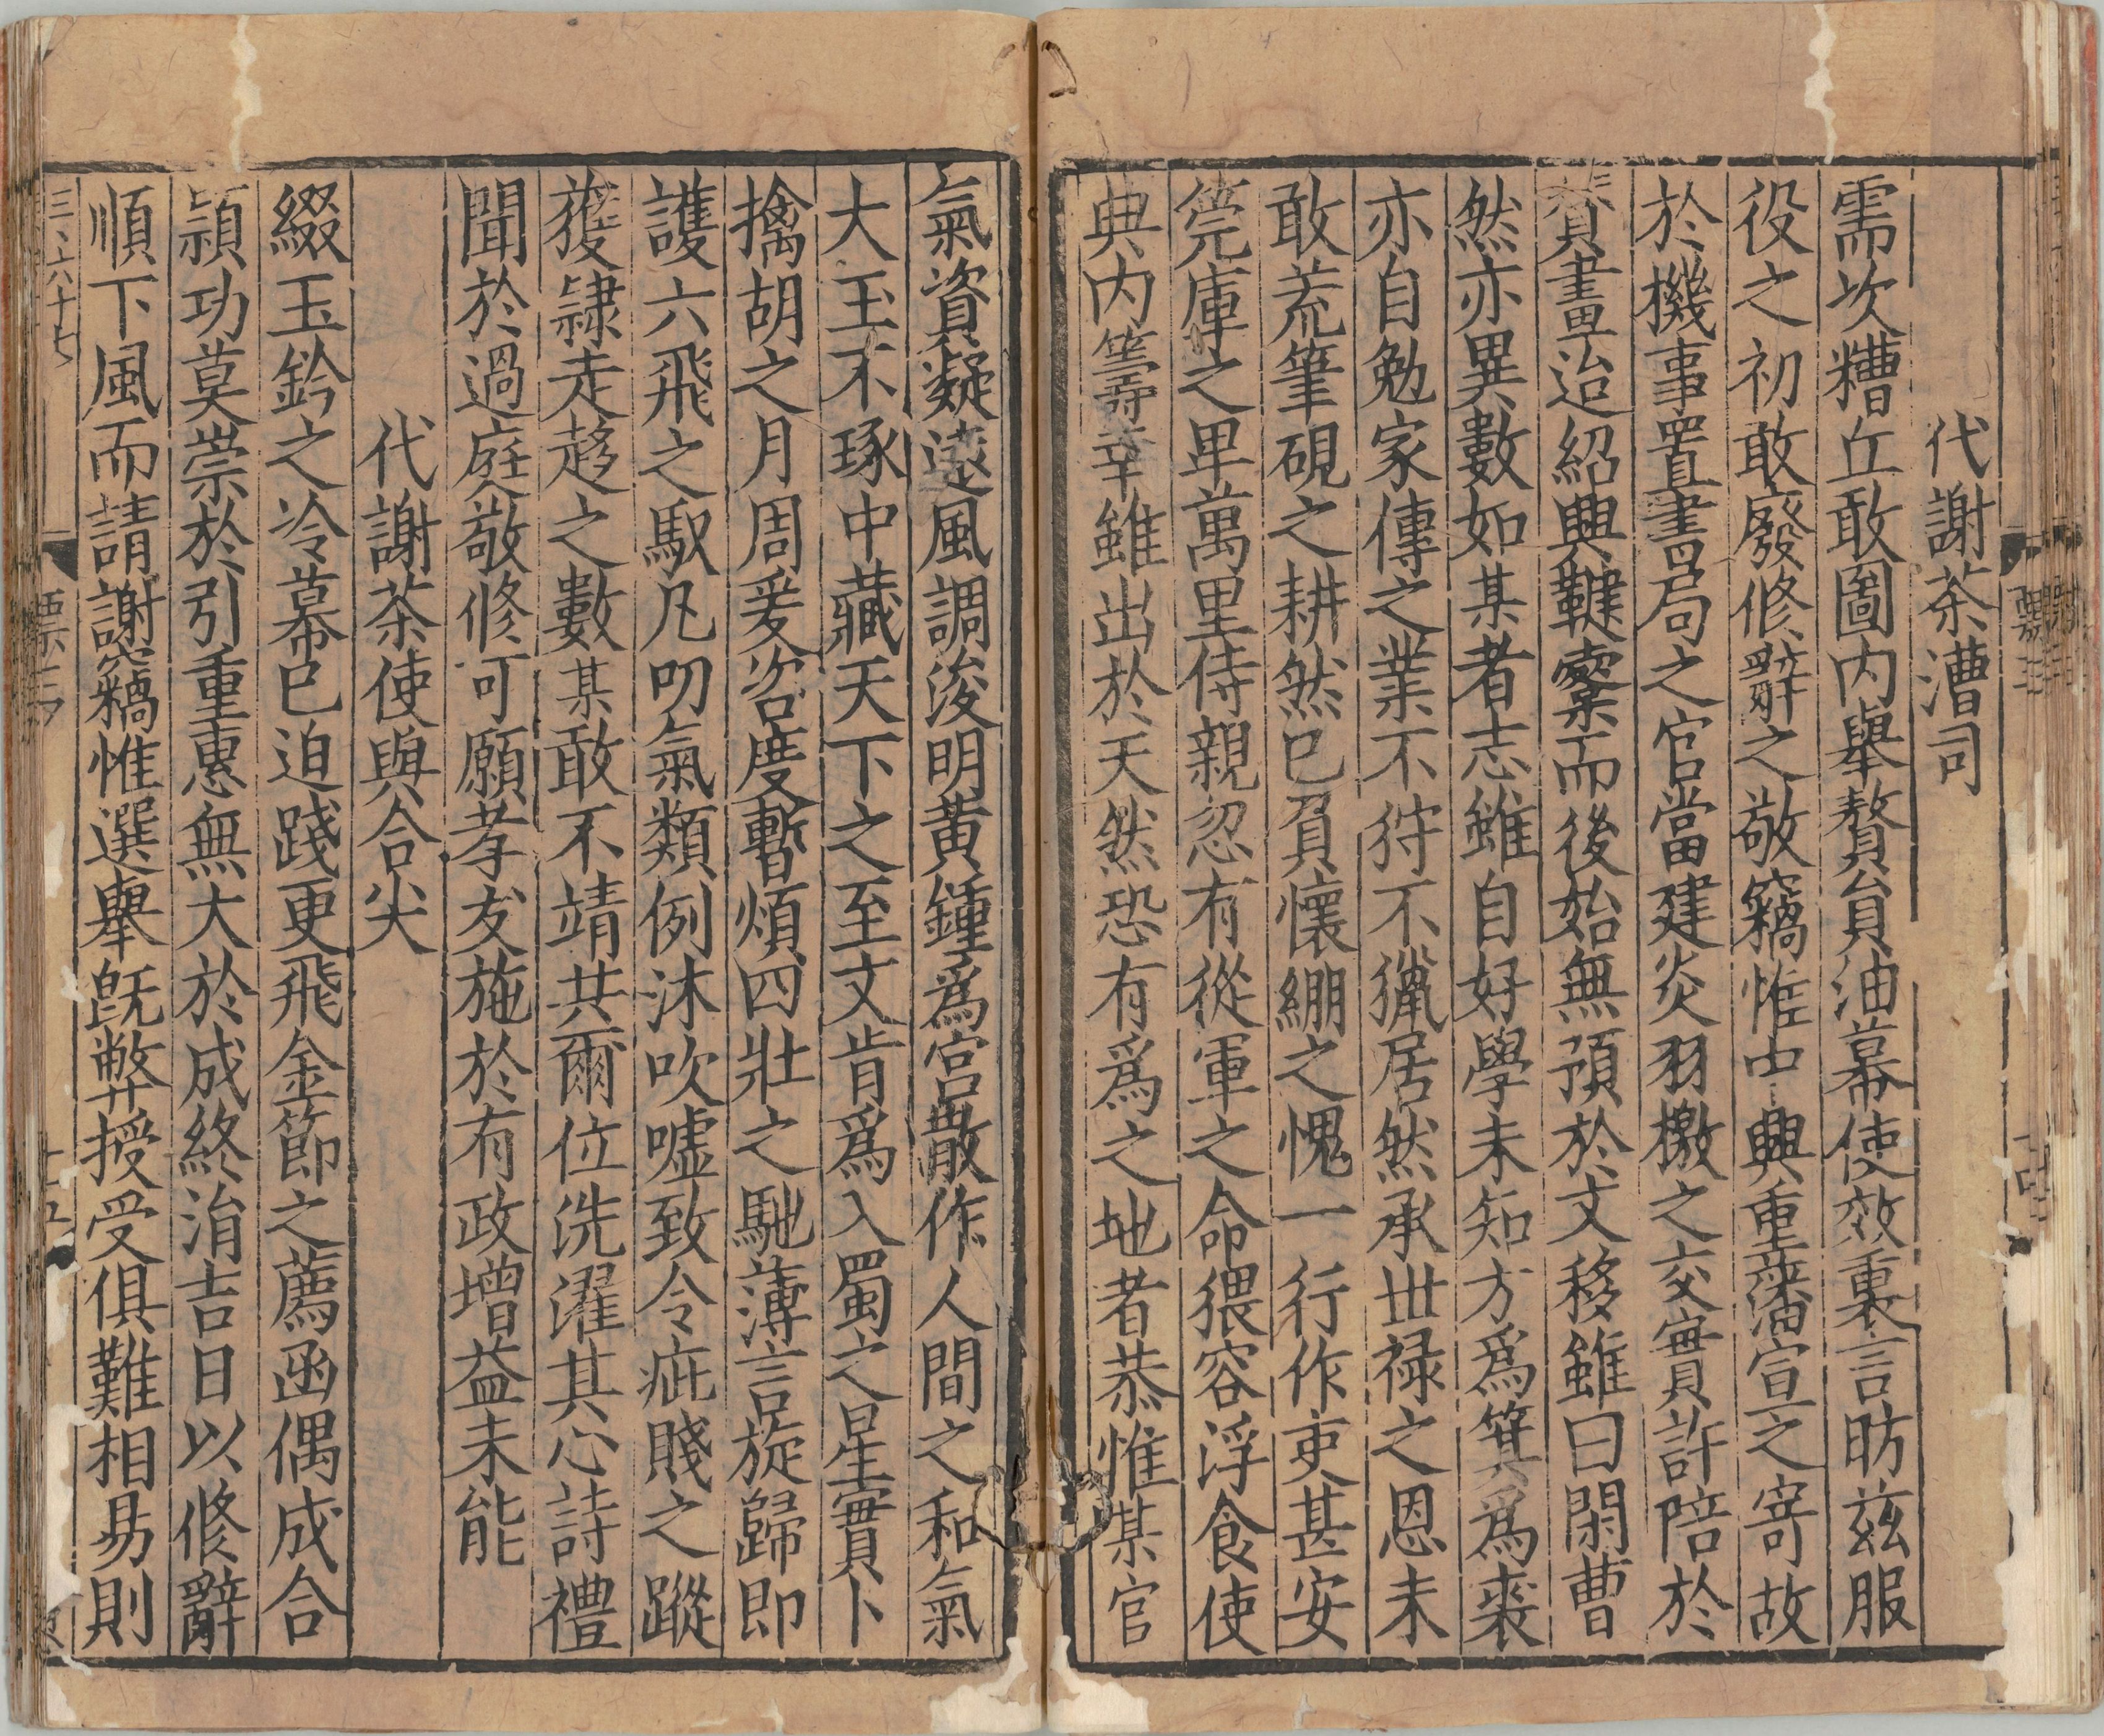 代謝茶漕司
需坎糟丘敢圖内舉贅貟油幕使效裏言昉兹服
役之初敢廢修辭之敬竊惟中興重藩宣之寄故
於機事置書局之官當建炎羽檄之交實許陪於
賛畫迨紹興鞬櫜而後始無預於文移雖曰閑曹
然亦異數如某者志雖自好學未知方爲箕爲裘
亦自勉家傳之業不狩不獵居然承世禄之恩未
敢荒筆硯之耕然已負懷綳之愧一行作吏甚安
筦庫之卑萬里侍親忽有從軍之命猥容浮食使
典内籌幸雖出於天然恐有爲之地者恭惟某官
氣資凝遠風調浚明黄鍾爲宫散作人間之和氣
大玉不琢中藏天下之至文肯爲入蜀之星實卜
擒胡之月周爰咨度暫煩四壯之馳薄言旋歸即
護六飛之馭凡叨氣類例沐吹嘘致令疵賤之蹤
獲隷走趍之數某敢不靖共爾位洗濯其心詩禮
聞於過庭敬修可願孝友施於有政增益未能
代謝茶使與合尖
綴玉鈐之冷幕已迫踐更飛金節之薦函偶成合
頴功莫崇於引重惠無大於成終涓吉日以修辭
順下風而請謝竊惟選舉旣弊授受俱難相昜則
三、六十七